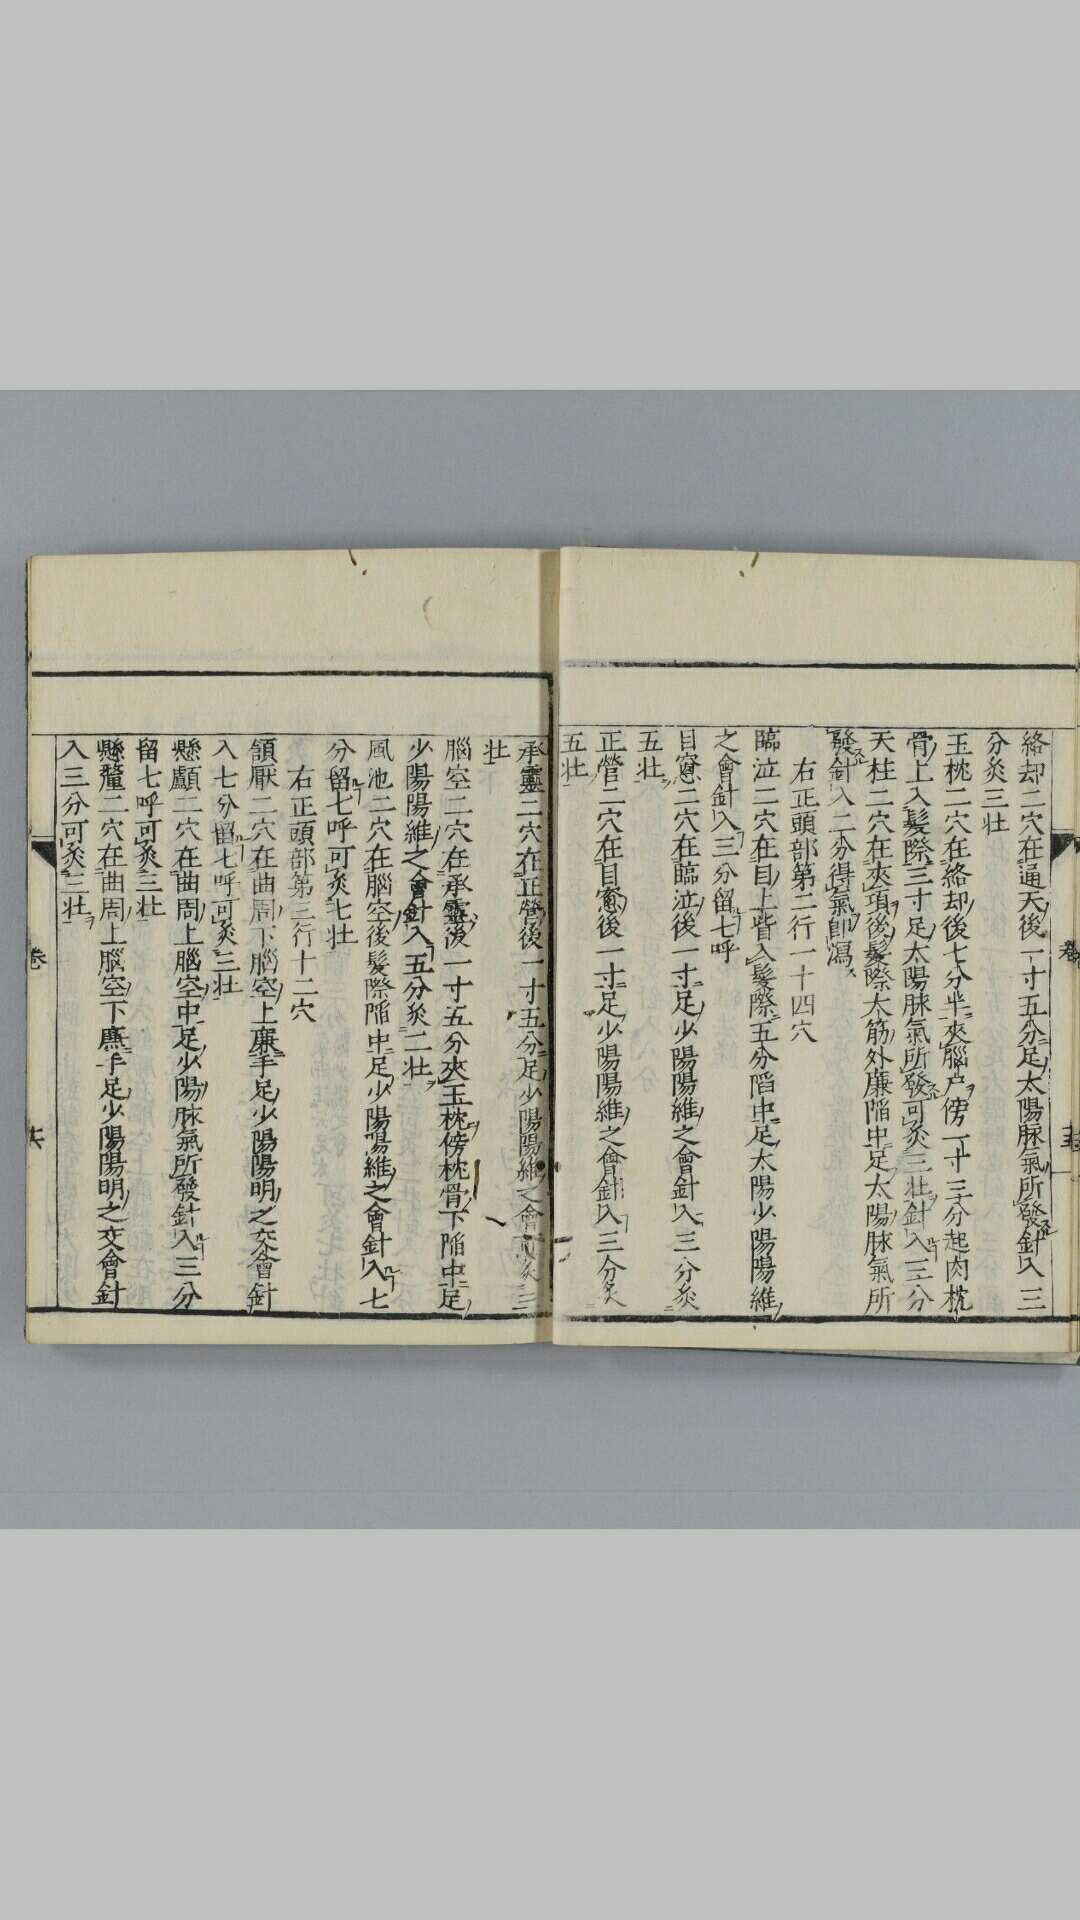 絡却二穴在通天後一寸五分足太陽脉氣所發針入三
分灸三壮
玉枕二穴在絡却後七分半夾腦户傍一寸三分起肉枕
骨上入髮際三寸足太陽脉氣所發可灸三壮針入三分
天柱二穴在夾項後髮際大筋外廉陷中足太陽脉氣所
發針入二分得氣即瀉
右正頭部第二行一十四穴
臨泣二穴在目上眥入髮際五分陷中足太陽少陽陽維
之會針入三分留七呼
目窓二穴在臨泣後一寸足少陽陽維之會針入三分灸
五壮
正營二穴在目窓後一寸足少陽陽維之會針入三分灸
五壮
承靈二穴在正營後一寸五分足少陽陽維之會可灸三
壮
腦空二穴在承靈後一寸五分夾玉枕傍枕骨下陷中足
少陽陽維之會針入五分灸二壮
風池二穴在腦空後髮際陷中足少陽陽維之會針入七
分留七呼可灸七壮
右正頭部第三行十二穴
頷厭二穴在曲周下腦空上廉手足少陽陽明之交會針
入七分留七呼可灸三壮
懸顱二穴在曲周上腦空中足少陽脉氣所發針入三分
留七呼可灸三壮
懸釐二穴在曲周上腦空下廉手足少陽陽明之交會針
入三分可灸三壮
卷